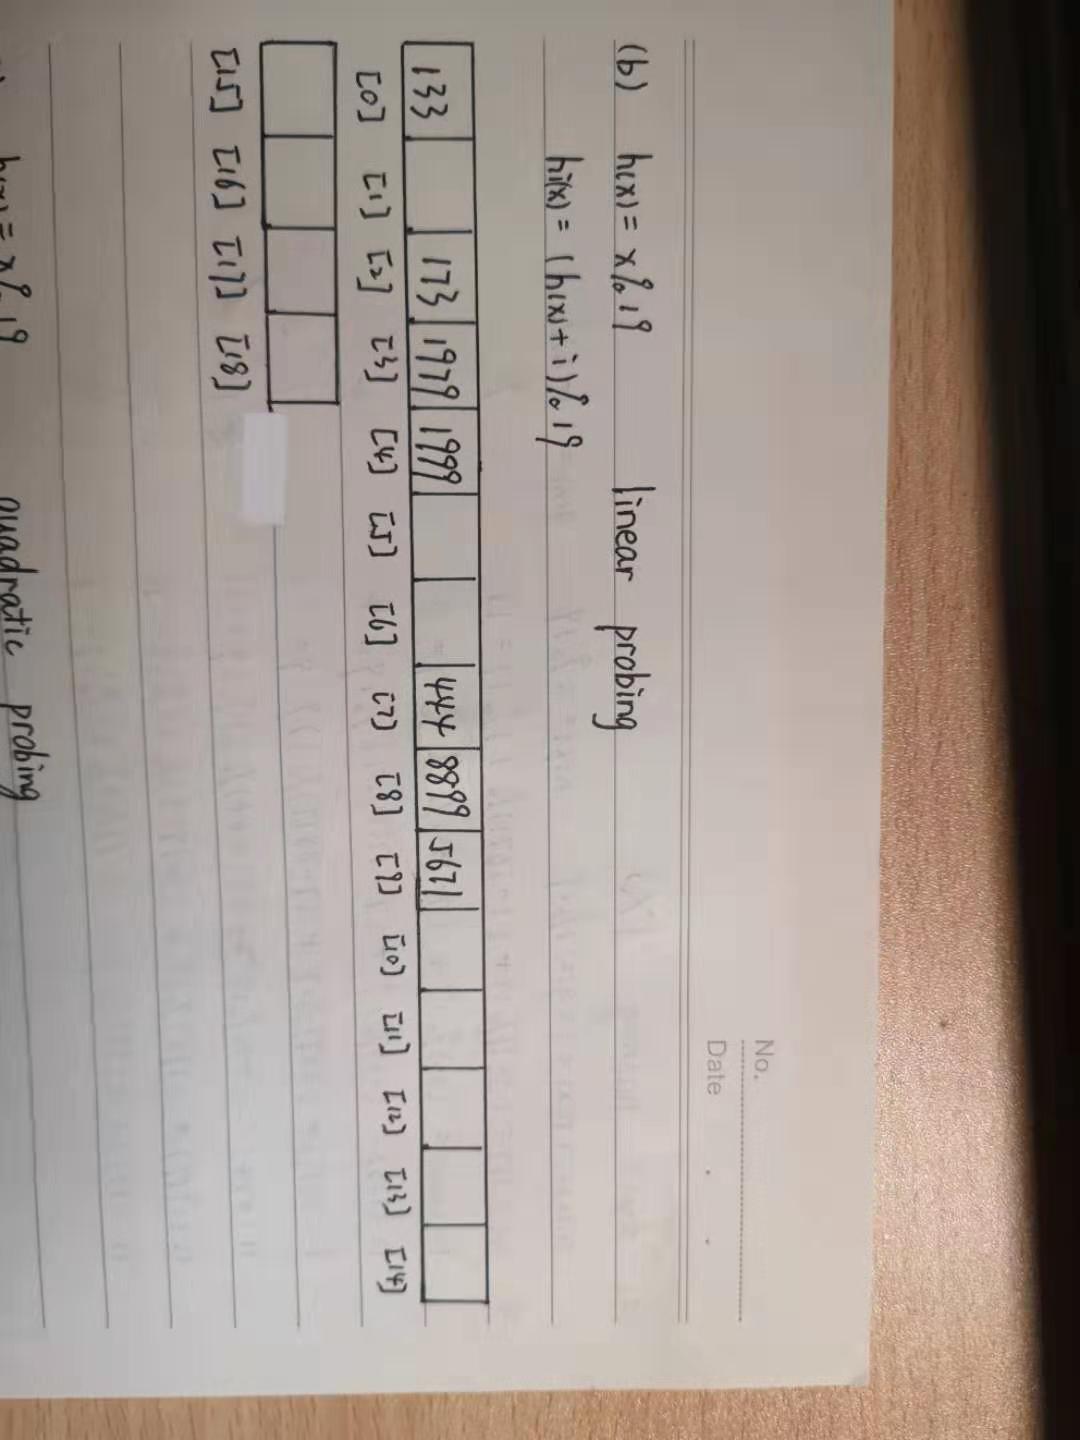 No.
Date
(b) h(x) = x % 19 linear probing
hi(x) = (h(x) + i) % 19
133 173 1979 1999 444 8899 5671
[0] [1] [2] [3] [4] [5] [6] [7] [8] [9] [10] [11] [12] [13] [14]
[15] [16] [17] [18]
h(x) = x % 19 quadratic probing